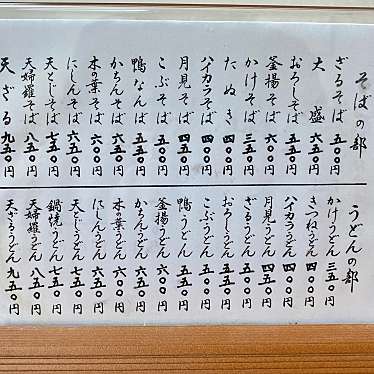 そばの部
ざるそば 五五〇円
大盛 六五〇円
おろしそば 五五〇円
釜揚そば 六〇〇円
かけそば 三五〇円
たぬき 四〇〇円
ハイカラそば 四〇〇円
月見そば 四五〇円
こぶそば 五〇〇円
鴨なんば 五五〇円
かちんそば 六〇〇円
木の葉そば 六〇〇円
にしんそば 六五〇円
天とじそば 七五〇円
天婦羅そば 八五〇円
天ざる 九五〇円
うどんの部
かけうどん 三五〇円
きつねうどん 四〇〇円
ハイカラうどん 四〇〇円
月見うどん 四五〇円
ざるうどん 五五〇円
おろしうどん 五五〇円
こぶうどん 五〇〇円
鴨うどん 五五〇円
釜揚うどん 六〇〇円
かちんうどん 六〇〇円
木の葉うどん 六〇〇円
にしんうどん 六五〇円
天とじうどん 七五〇円
鍋焼うどん 七五〇円
天婦羅うどん 八五〇円
天ざるうどん 九五〇円